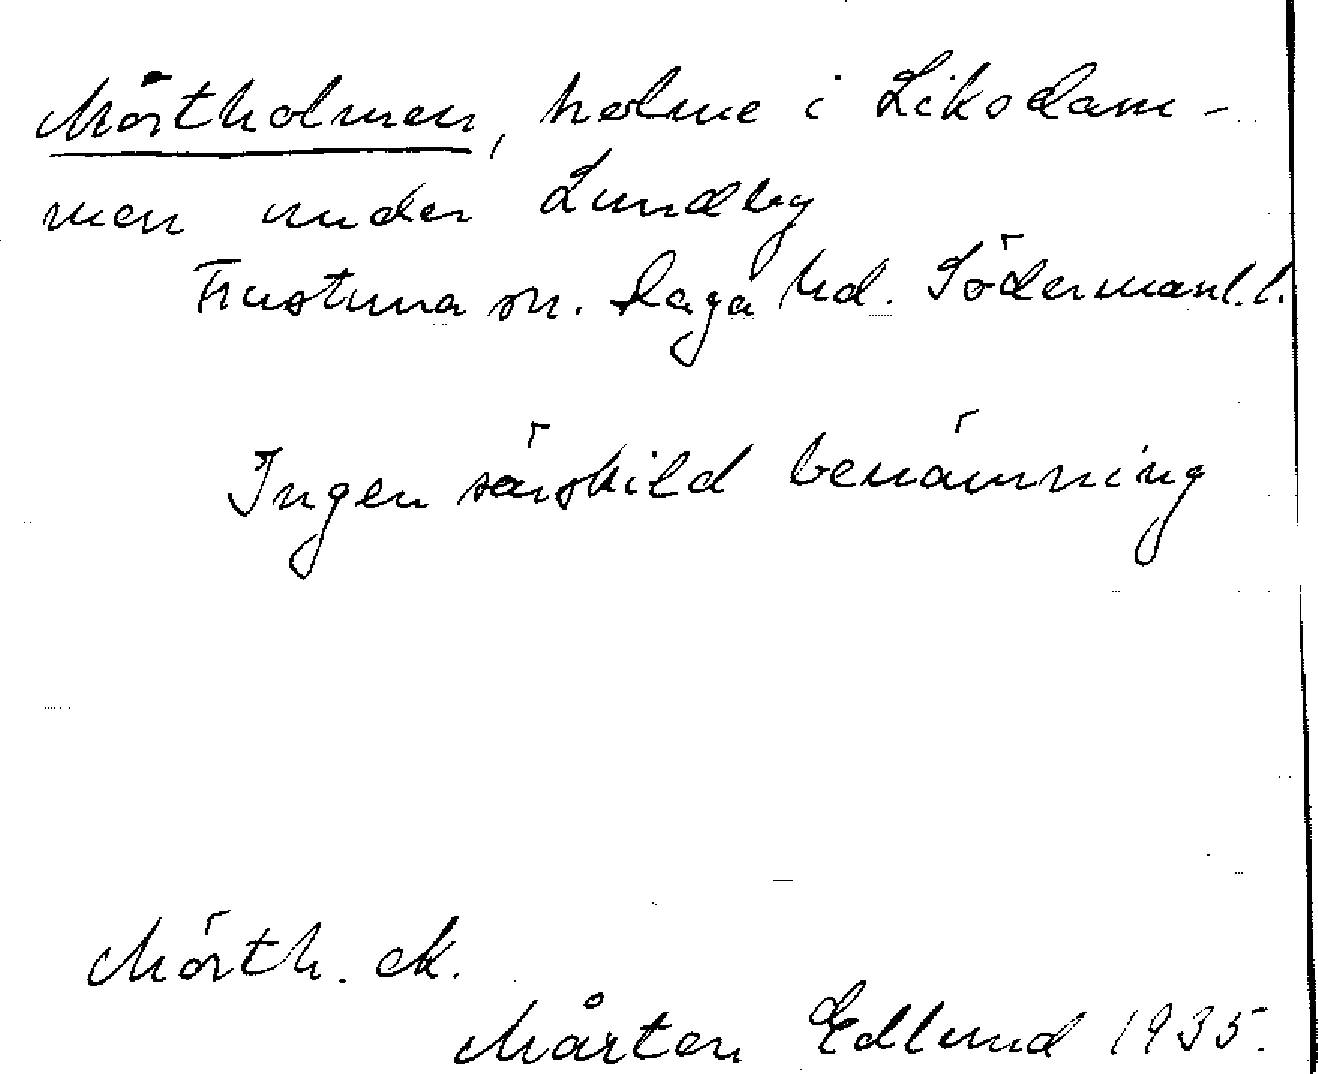 Mörtholmen, holme i Liksdam-
men under Lundby
Frustuna sn. Daga hd. Södermanl. l.
Ingen särskild benämning
Mörth. ek.
Mårten Edlund 1935.